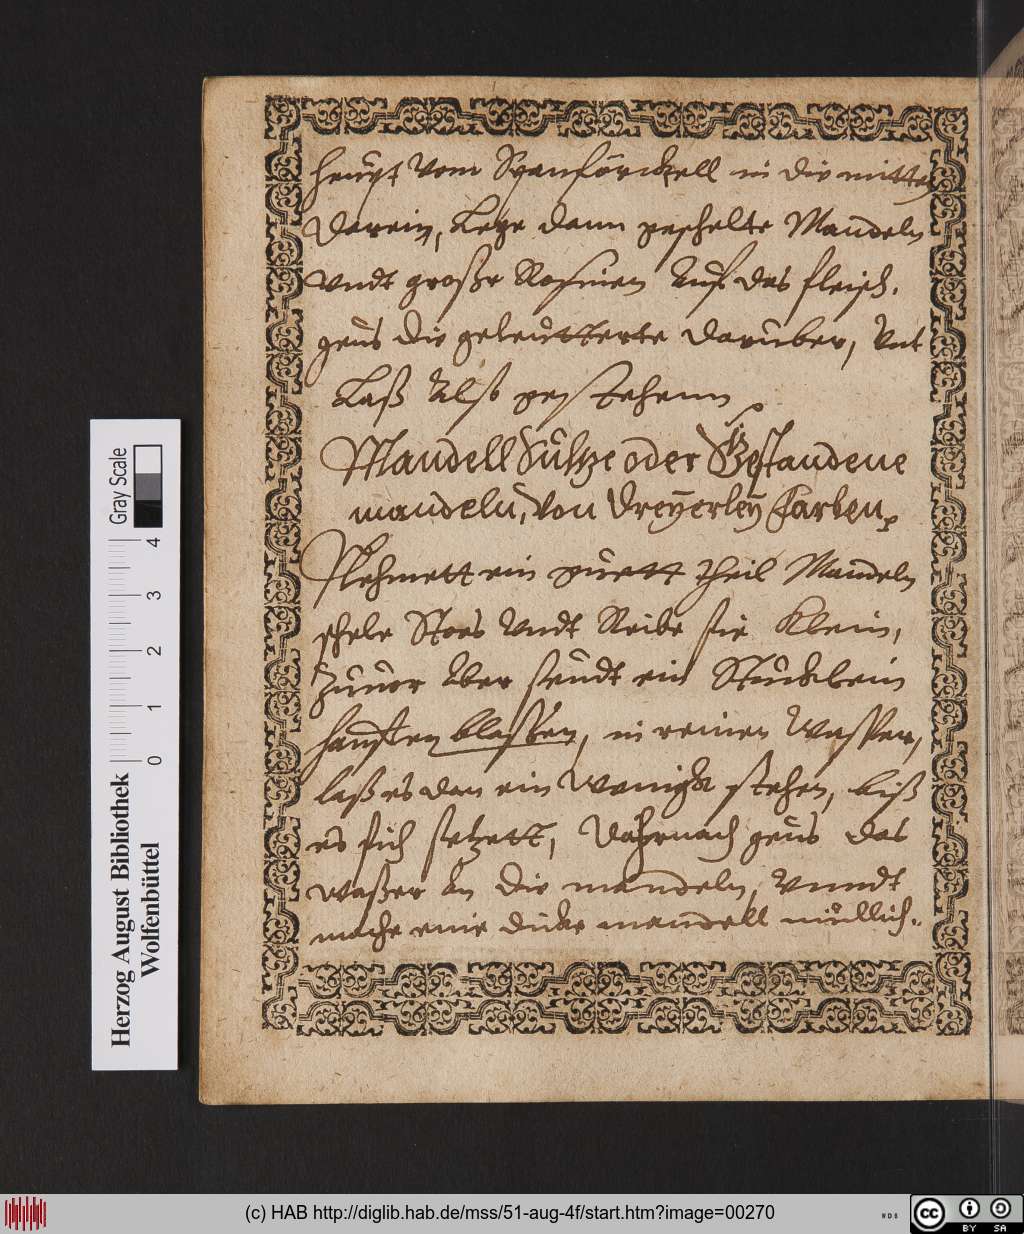 heüpt vom Spanförckell in die mitte
darein, Lege dann geschelte Mandeln
vndt große Rosinen auf das fleisch,
geüs die geleütterte darüber, vnt
Laß Also gestehenn
Mandell Sültze oder Gestandene
mandeln, von dreÿerleÿ Farben,
Nehmett ein güett theil Mandeln
schele Stoes vndt Reibe sie Klein,
zuuor aber seüdt ein Stücklein
haußen blaßen, in reinen Waßer,
laß es dan ein wenigk stehen, biß
es sich setzett, dahrnach geüs das
waßer an die mandeln, vnndt
mache eine dicke mandell müllich.
Gray Scale
0 1 2 3 4
Herzog August Bibliothek
Wolfenbüttel
(c) HAB http://diglib.hab.de/mss/51-aug-4f/start.htm?image=00270
WDB
cc BY SA